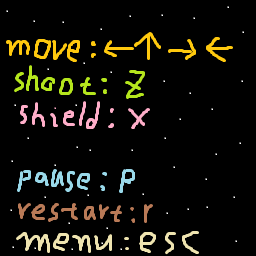 move: ←↑→←
shoot: Z
shield: x
pause: P
restart: r
menu: esc